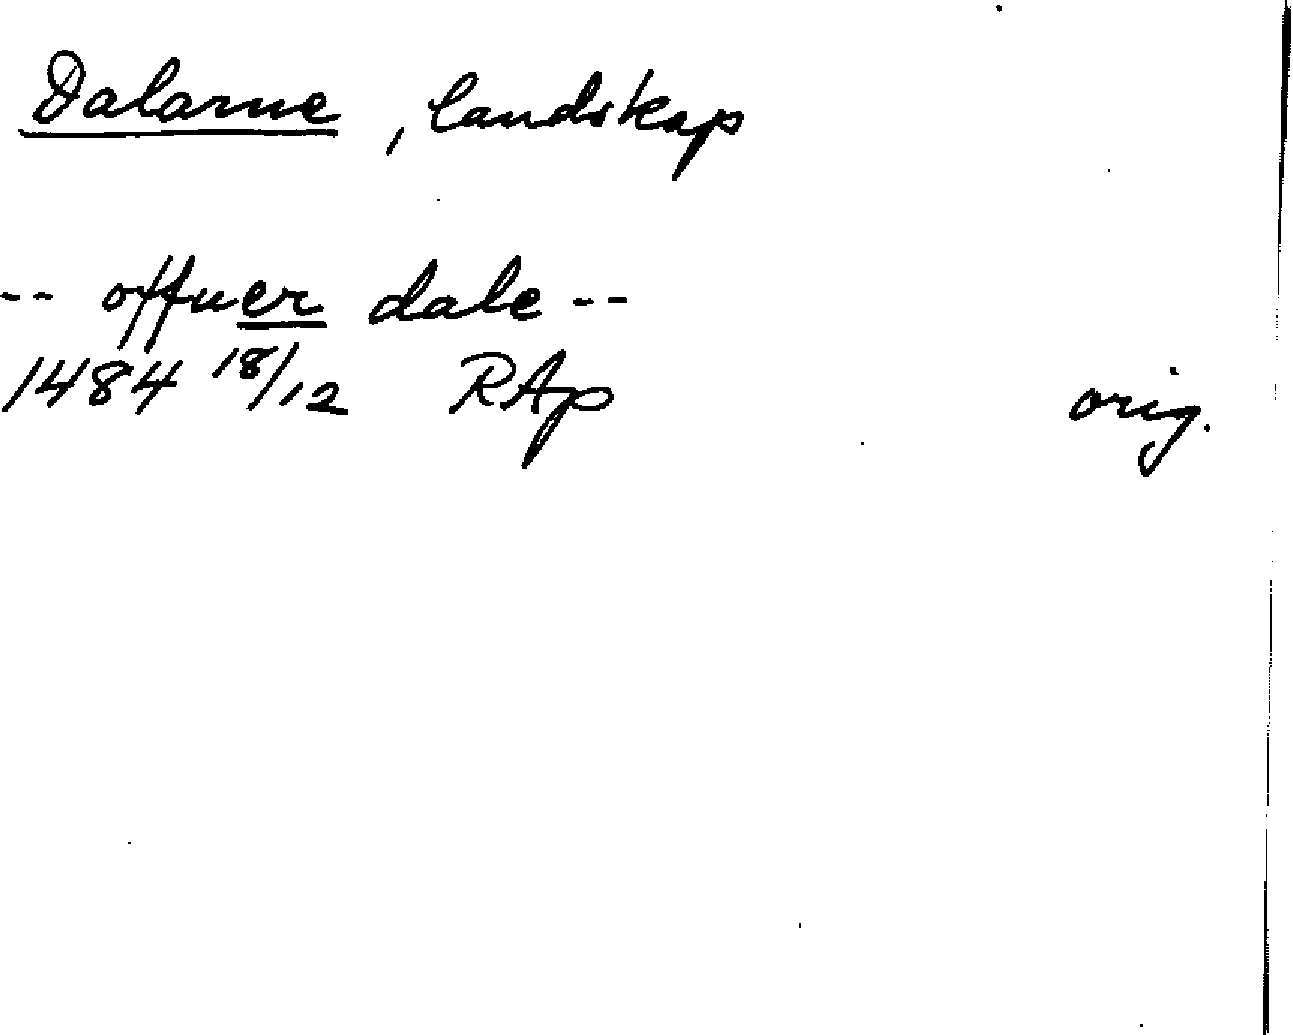 Dalarne, landskap
-- offuer dale --
1484 18/12 RAp orig.